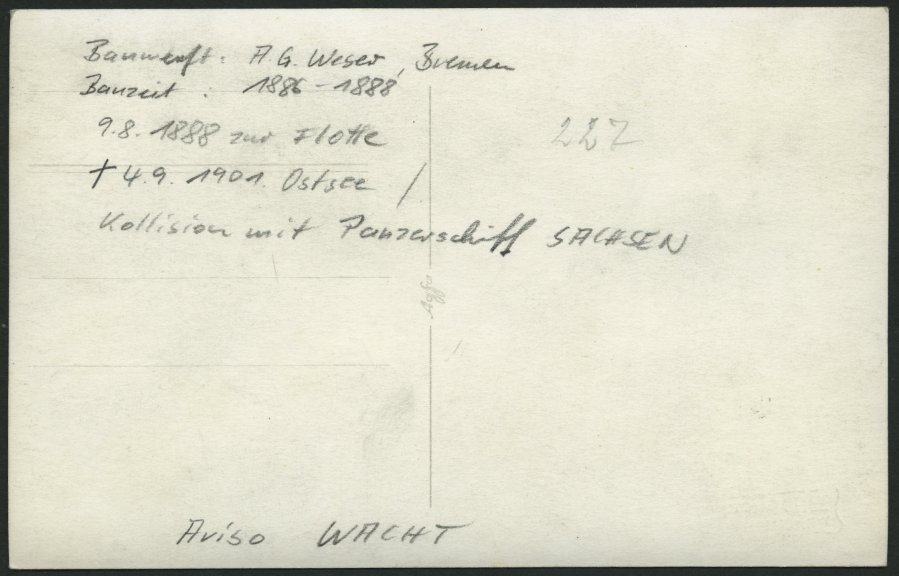 Bauwerft : A.G. Weser, Bremen
Bauzeit : 1886 - 1888
9.8. 1888 zur Flotte
227
† 4.9. 1901. Ostsee /
Kollision mit Panzerschiff SACHSEN
Agfa
Aviso WACHT